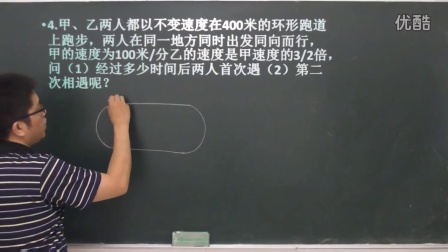 •4.甲、乙两人都以不变速度在400米的环形跑道
上跑步，两人在同一地方同时出发同向而行，
甲的速度为100米/分乙的速度是甲速度的3/2倍，
问（1）经过多少时间后两人首次遇（2）第二
次相遇呢？
优酷